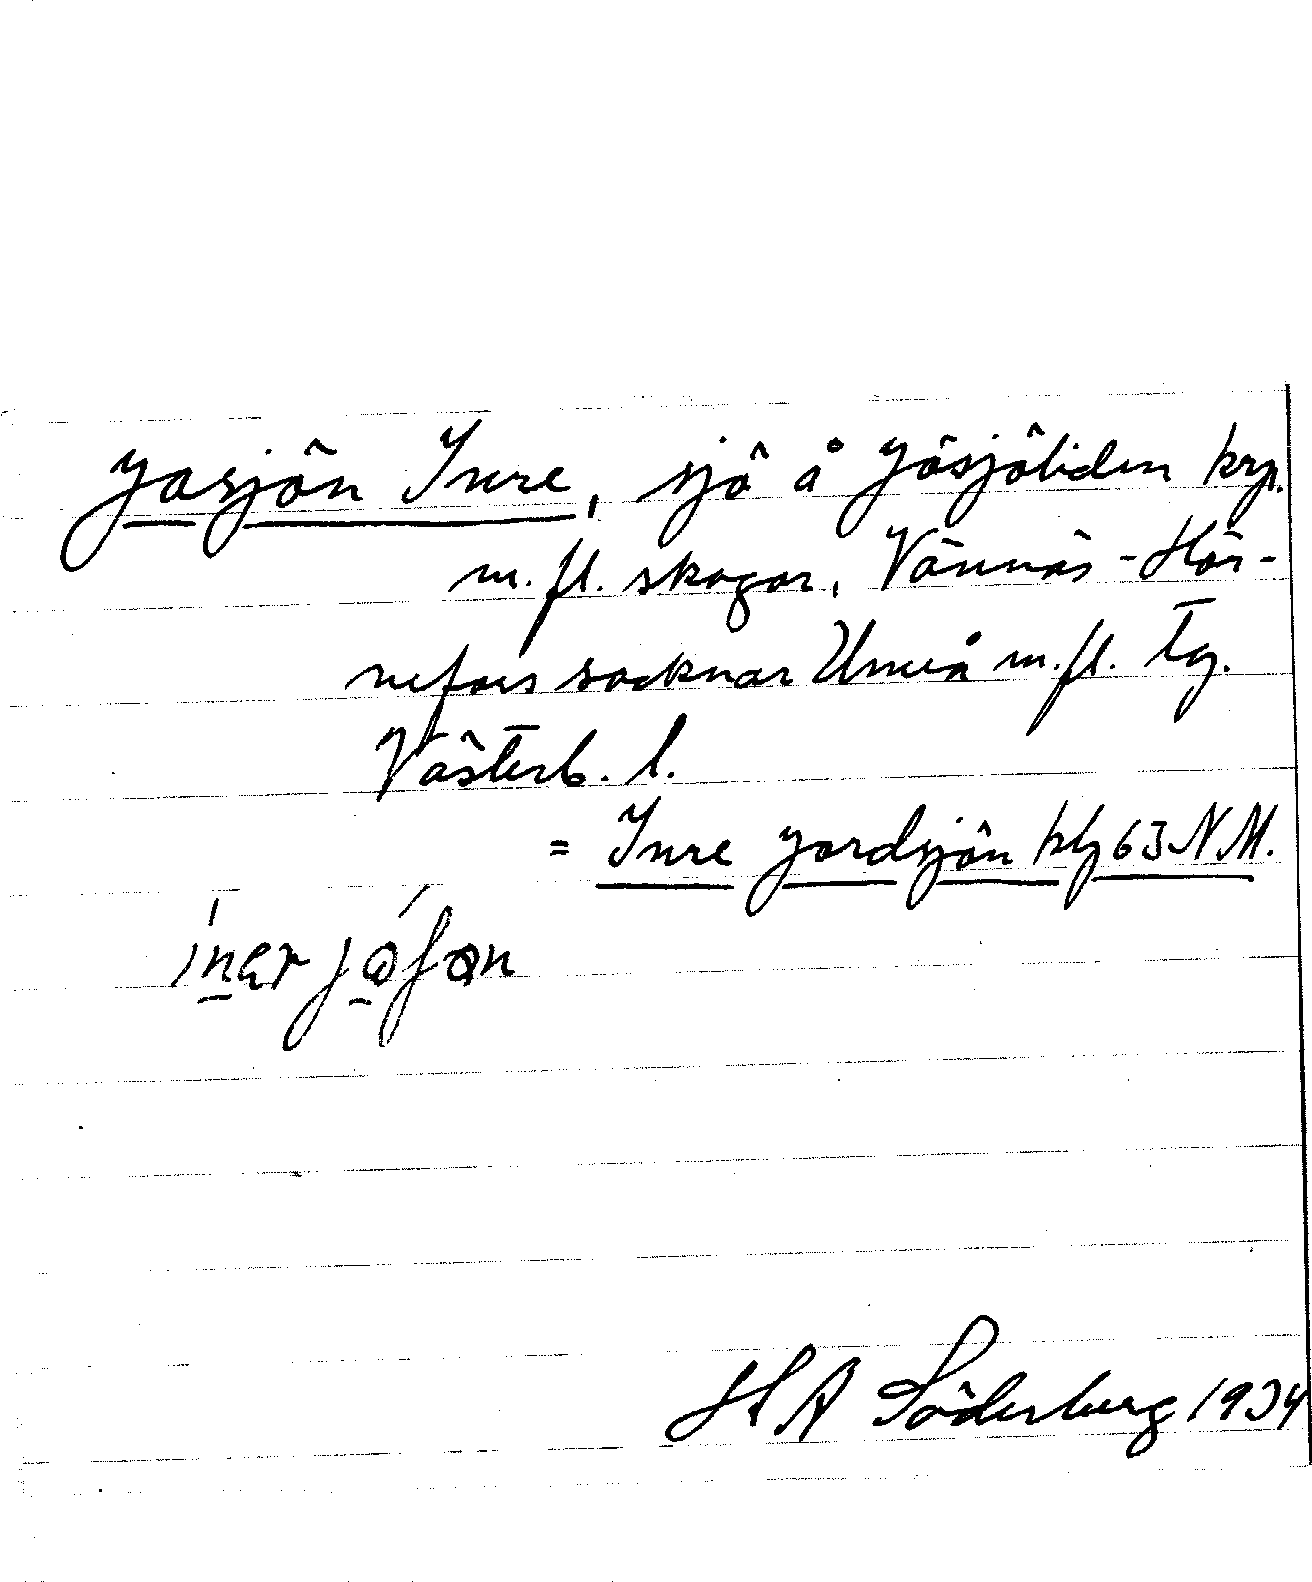 Gåsjön Inre, sjö å Gåsjöliden krp.
m.fl. skogar, Vännäs - Hör-
nefors socknar Umeå m.fl. Tg.
Västerb. l.
= Inre Gårdsjön kbl 63 NM.
H A Söderberg 1934